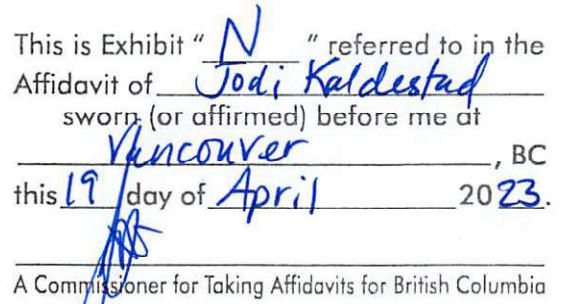 This is Exhibit " N " referred to in the
Affidavit of Jodi Kaldestad
sworn (or affirmed) before me at
Vancouver, BC
this 19 day of April 2023.
A Commissioner for Taking Affidavits for British Columbia